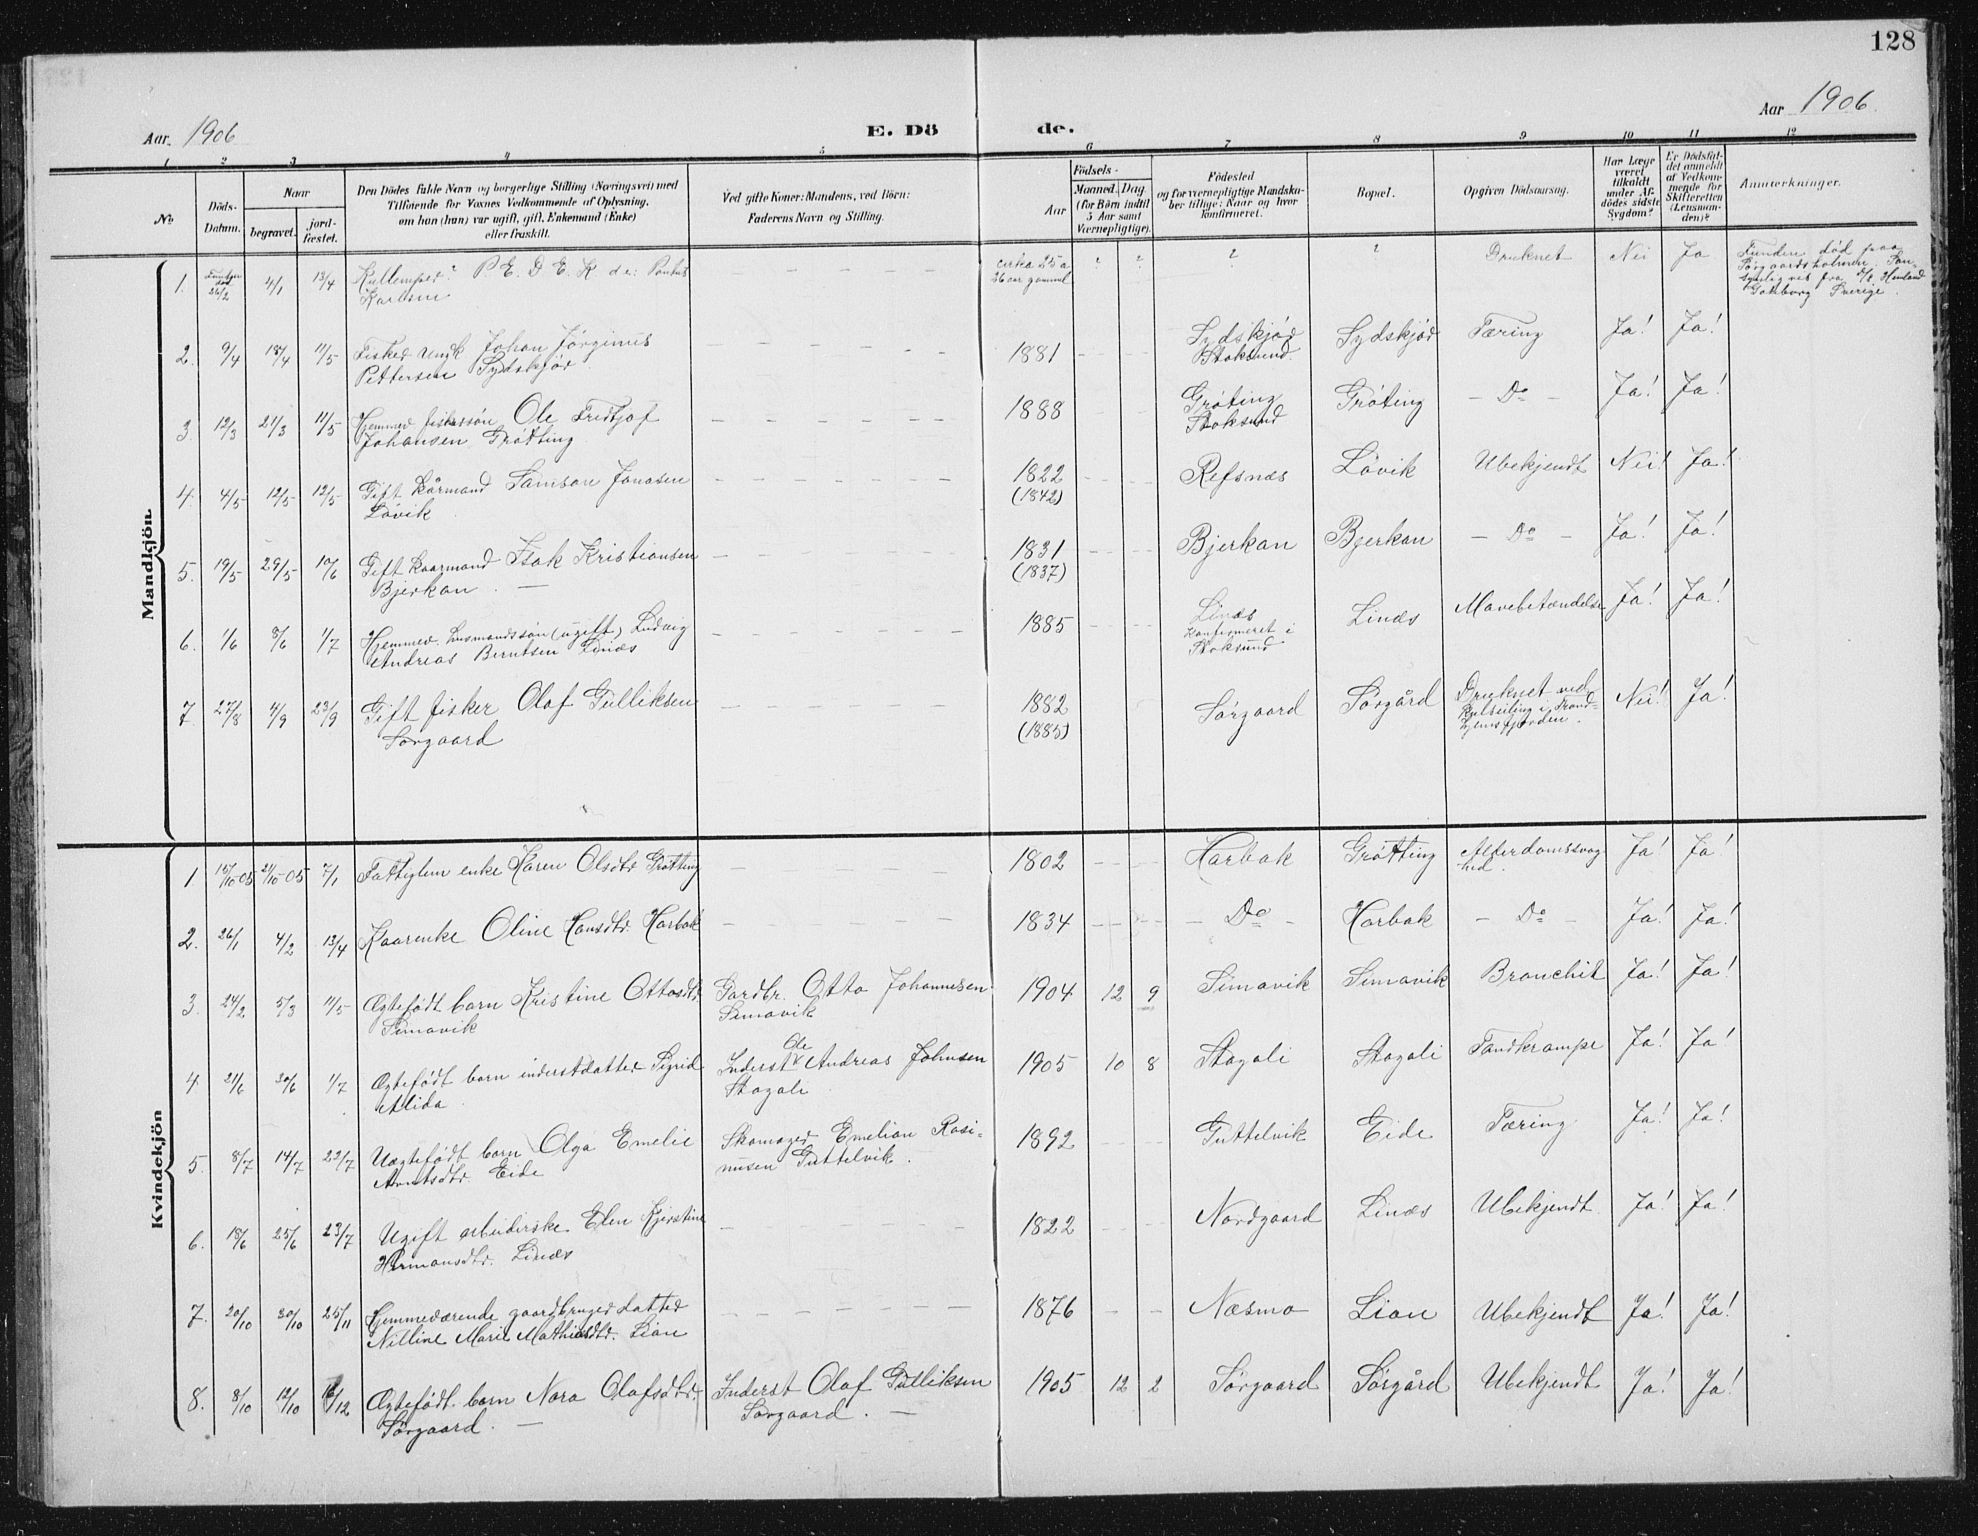 128
Aar. 1906
E. Dö de.
Aar 1906.
1 2 3 4 5 6 7 8 9 10 11 12
No
Döds-Datum.
Naar
begravet.
jord-fæstet.
Den Dödes fulde Navn og borgerlige Stilling (Næringsvei) med
Tilføiende for Voxnes Vedkommende af Oplysning,
om han (hun) var ugift, gift, Enkemand (Enke)
eller fraskilt.
Ved gifte Koner: Mandens, ved Börn:
Faderens Navn og Stilling.
Födsels-
Aar
Maaned. Dag.
(for Börn indtil
5 Aar samt
Værnepligtige).
Födested
og for værnepligtige Mandska-
ber tillige: Naar og hvor
konfirmeret.
Bopæl.
Opgiven Dödsaarsag.
Har Læge
været
tilkaldt
under Af-
dödes sidste
Sygdom?
Er Dödsfal-
det anmeldt
af Vedkom-
mende for
Skifteretten
(Lensman-
den)?
Anmærkninger.
Mandkjön.
1. Funden död 26/2 4/1 13/4 P. E. D. E. K d.e: Pontus cirka 25 a ? ? ? ? Druknet Nei Ja Funden död paa
Karlsen 26 aar gammel Sörgaardsholmen.
Göteborg Sverige.
2. 9/4 18/4 11/5 Fisker Ungk Johan Jörginus 1881 Sydskjör Sydskjör Tæring Ja! Ja!
Pettersen Sydskjör. Stoksund.
3. 12/3 21/3 11/5 Hjemmev. fiskerssön Ole Fredtjof 1888 Gröting Gröting – Do – Ja! Ja!
Johansen Grötting Stoksund
4. 4/5 12/5 12/5 Gift Kårmand Samson Jonasen 1822 Refsnæs Lövik Ubekjendt Nei! Ja!
Lövik (1842)
5. 19/5 29/5 10/6 Gift Kaarmand Isak Kristiansen 1831 Bjerkan Bjerkan – Do – Ja! Ja!
Bjerkan. — (1837)
6. 1/6 8/6 1/7 Hjemmev. husmandssön (ugift) Ludvig 1885 Linæs Linæs Mavebetændelse Ja! Ja!
Andreas Berntsen Linæs konfirmeret i
Stoksund
7. 27/8 4/9 23/9 Gift fisker Olaf Gulliksen 1882 Sörgaard Sörgård Druknet ved Nei! Ja!
Sörgaard (1885) kulseiling i Trond-
hjemsfjorden.
Kvindekjön
1. 15/10-05 21/10-05 7/1 Fattiglem enke Karen Olsdtr Grötting 1802 Harbak Grötting Alderdomssvag- Ja! Ja!
hed.
2. 26/1 4/2 13/4 Kaarenke Oline Hansdtr. Harbak 1834 – Do – Harbak – Do – Ja! Ja!
3. 24/2 5/3 11/5 Ægtefödt barn Kristine Ottosdtr. Gardbr. Otto Johannesen 1904 12 9 Simavik Simavik Bronchit Ja! Ja!
Simavik Simavik
4. 21/6 30/6 1/7 Ægtefödt barn inderstdatter Sigrid Inderst Ole Andreas Johnsen 1905 10 8 Stogali Stogali Tandkrampe Ja! Ja!
Alida. Stogali
5. 8/7 14/7 22/7 Uægtefödt barn Olga Emelie Skomager Emelian Rasi- 1892 Guttelvik Eide Tæring Ja! Ja!
Arntsdtr. Eide nusen Guttelvik.
6. 18/6 25/6 23/7 Ugift arbeiderske Elen Kjerstine 1822 Nordgaard Linæs Ubekjendt. Ja! Ja!
Hermansdtr. Linæs
7. 20/10 30/10 25/11 Hjemmeværende gaardbruger datter 1876 Næsmo Lian Ubekjendt Ja! Ja!
Nilline Marie Mathiasdtr. Lian
8. 8/10 12/10 16/12 Ægtefödt barn Nora Olafsdtr. Inderst Olaf Gulliksen 1905 12 2 Sörgaard Sörgård Ubekjendt Ja! Ja!
Sörgaard. — Sörgaard. —